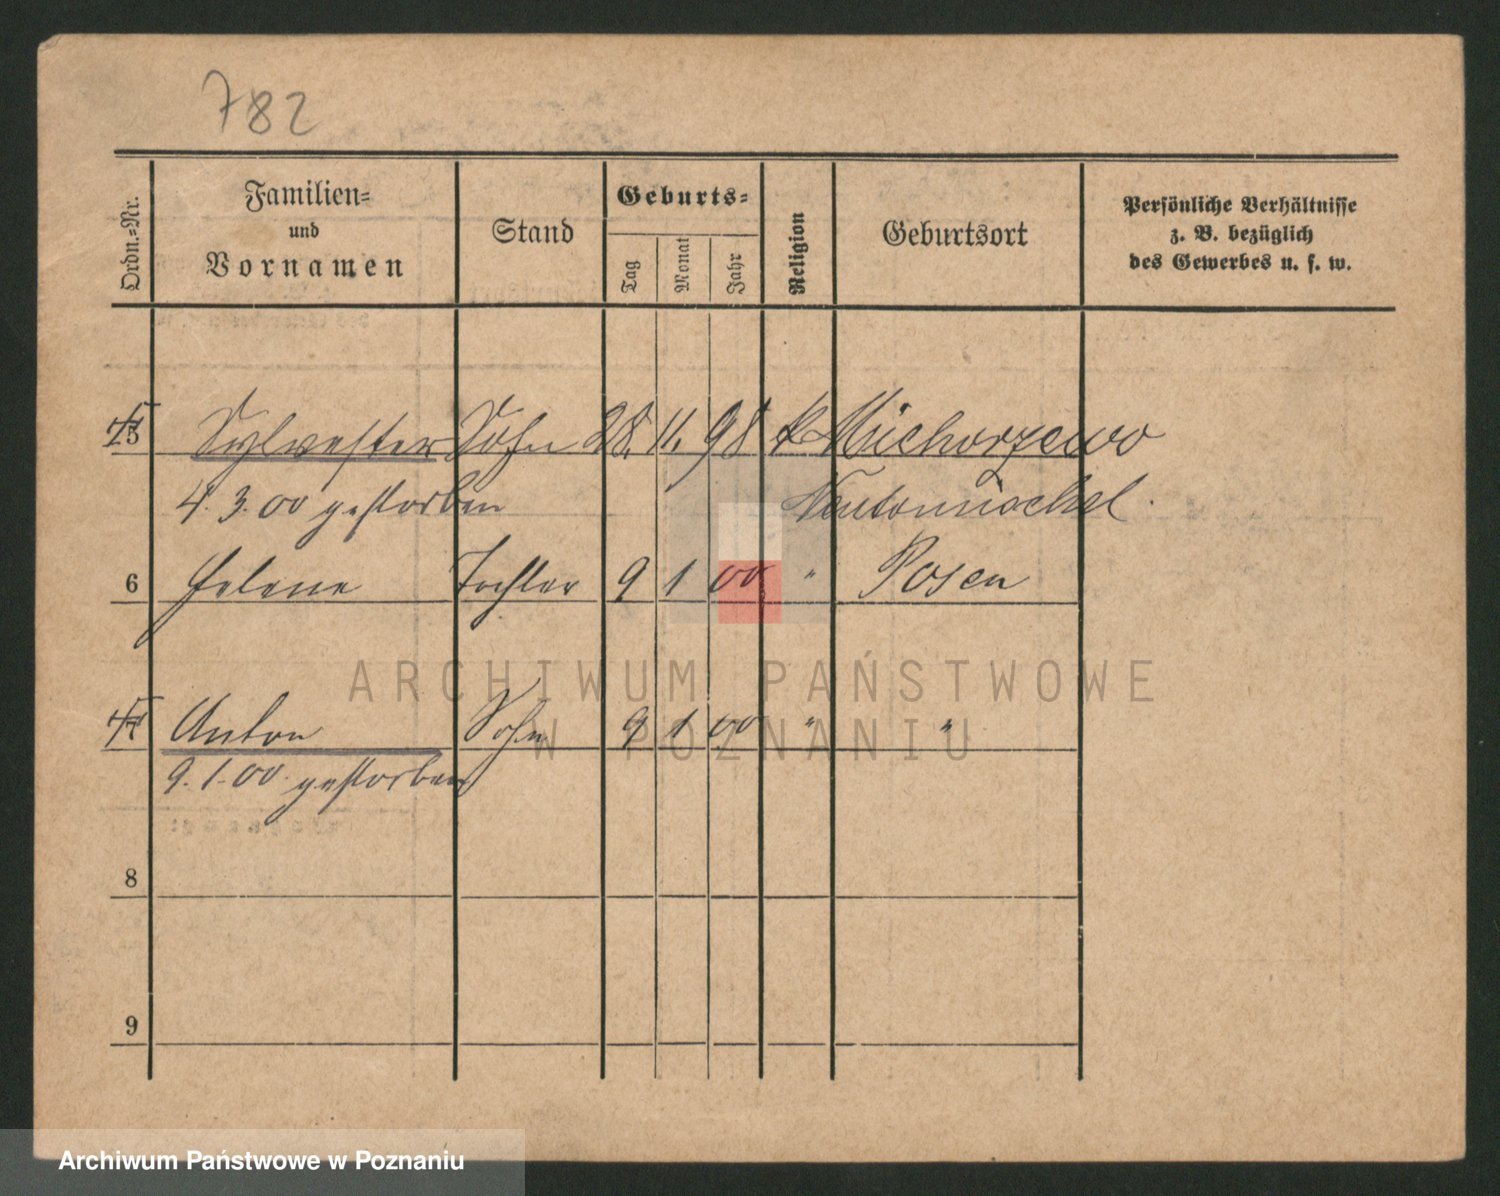 782
Ordn.-Nr.
Familien-
und
Vornamen
Stand
Geburts-
Tag
Monat
Jahr
Religion
Geburtsort
Persönliche Verhältnisse
z. B. bezüglich
des Gewerbes u. s. w.
5 Sylvester Sohn 28. 11. 98 k Michorzewo
4. 3. 00 gestorben Neutomischel.
6 Helene Tochter 9 1 00 " Posen
7 Anton Sohn 9 1 00 " "
9. 1. 00. gestorben
8
9
ARCHIWUM PAŃSTWOWE
W POZNANIU
Archiwum Państwowe w Poznaniu